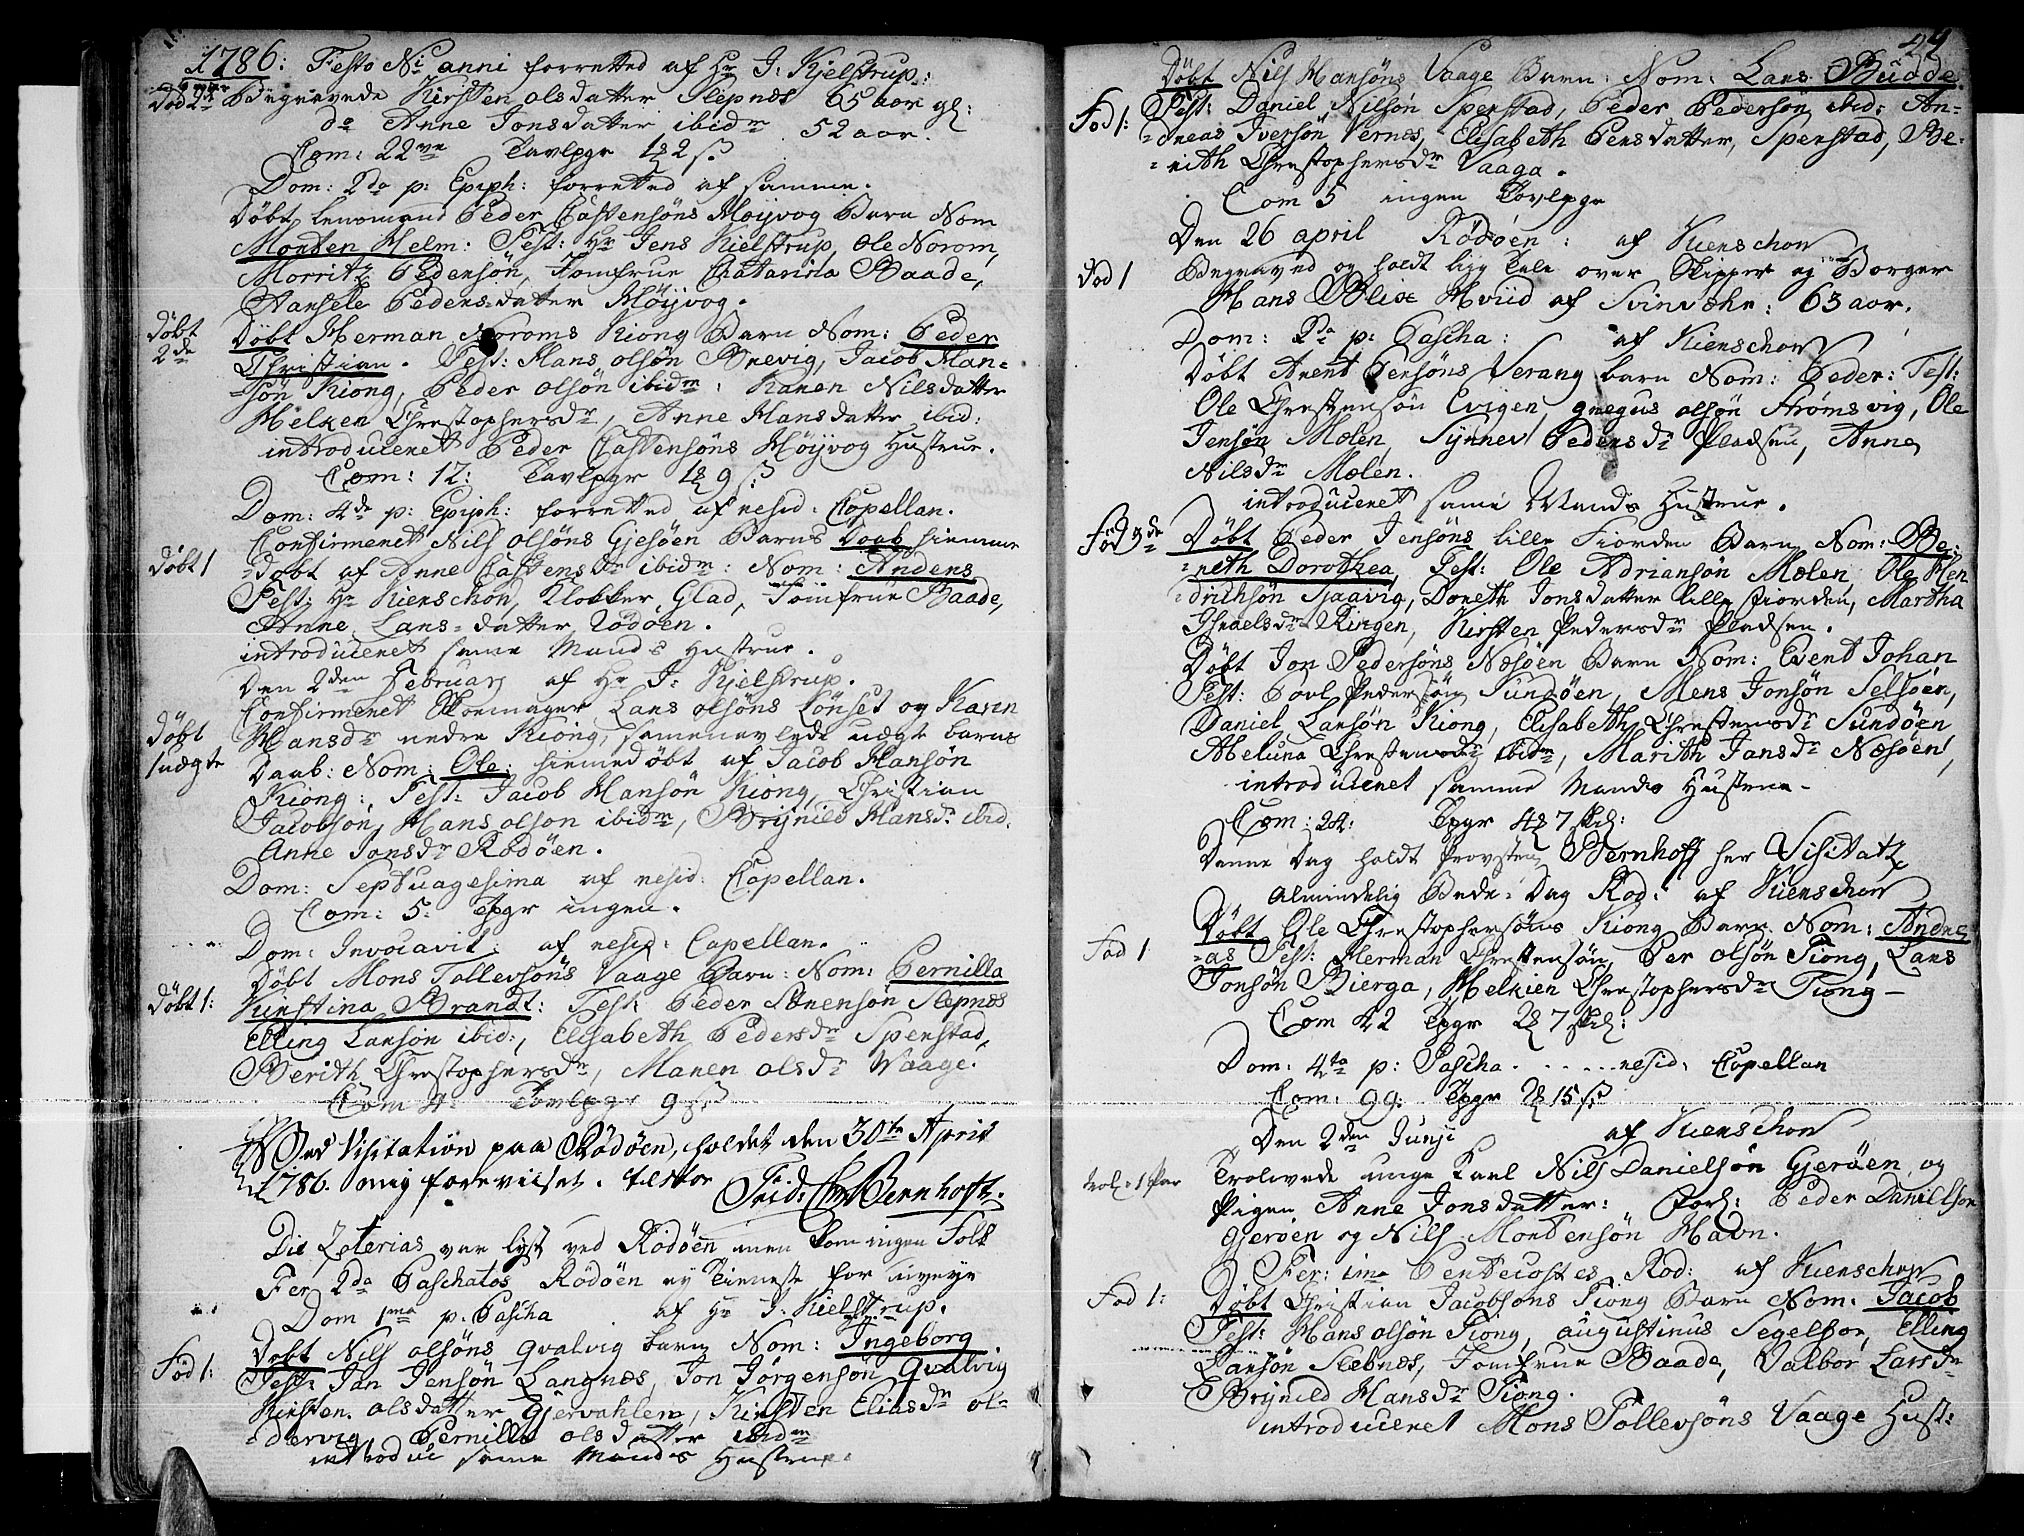 1786: Festo Ni anni forretted af Hr J: Kjelstrup:
Død 2de Begravede Kirsten olsdatter Slepnes 65 aar gl:
do Anne Jonsdatter ibidm 52 aar.
Com: 22ve Tavlpgr 1 2 ß
Dom: 2da p: Epiph: forretted af samme.
Døbt Lensmand Peder Castensøns Møyvog Barn Nom
Morten Helm: Test: Hr Jens Kielstrup, Ole Norom,
Morritz Pedersøn, Jomfrue Chatarina Baade,
Pedersdatter Møyvog.
Døbt
2de
Døbt Herman Noroms Kiong Barn Nom: Peder
Christian. Test: Hans olsøn Brevig, Jacob Han-
-søn Kiong, Peder olsøn ibidm: Karen Nilsdatter
Melken Christophersdr, Anne Hansdatter ibid:
introduceret Peder Castensøns Møyvog Hustrue.
Com: 12: Tavlpgr 1 9 ß
Dom: 4de p: Epiph: forretted af resid: Capellan.
Confirmeret Nils olsøns Gjesøen Barns Daab hiemme
Døbt 1 -døbt af Anne Castensdr ibidm: Nom: Anders
Test: Hr Kierschow, Klokker Glad, Jomfrue Baade,
Anne Lars-datter Rødøen.
introduceret samme Mands Hustrue.
Den 2den Februarj af Hr J: Kjelstrup.
Confirmeret Skoemager Lars olsøns Lønset og Karen
Døbt
1 uægte
Hansdr nedre Kiong, sammenavlede uægte barns
Daab: Nom: Ole: hiemedøbt af Jacob Hansøn
Kiong:, Test: Jacob Hansøn Kiong, Christian
Jacobsøn, Hans olson ibidm, Brynild Hansdr ibid.
Anne Jonsdr Rødøen.
Dom: Septuagesima af resid: Capellan.
Com: 5: Tpgr ingen.
Dom: Invocavit: af resid: Capellan.
Døbt Mons Tollevsøns Vaage Barn: Nom: Pernilla
Døbt 1: Kirstina Brandt: Test: Peder Sørensøn Slepnes
Elling Larsøn ibid:, Elisabeth Pedersdr Spenstad,
Berith Christophersdr, Maren olsdr Vaage.
Com 4: Tavlpgr 9 ß
Ved Visitation paa Rødøen, holdet den 30te April
1786. mig foreviist. testor Frid: Chr Bernhoft.
Die Zoterias var lyst ved Rødøen men kom ingen Folk
Fer 2da Paschatos Rødøen ey Tieneste for uveyr
Dom 1ma p. Pascha af Hr J. Kielstrup.
Død 1: Døbt Nils olsøns Qvalvig barn Nom: Ingeborg
Test: Jan Jensøn Langnes, Jon Jørgensøn Qvalvig
Kirsten olsdatter Gjervahlen, Kirsten Eliasdr ol-
-dervig, Pernille olsdatter ibidm
introdui samme Mands Hustrue.
44
Døbt Nils Hansøns Vaage Barn: Nom: Lars Budde
Fød 1: Test: Daniel Nilsøn Spenstad, Peder Pedersøn ibid: An-
-dreas Iversøn Vernes, Elisabeth Persdatter, Spenstad, Be-
-rith Christophersdr Vaaga.
Com 5 ingen Tavlpgr
Den 26 april Rødøen: af Kierschow
Død 1 Begraved og holdt liig tale over Skipper og Borger
Hans Blix Hviid af Svinvehr: 63 aar.
Dom: 2da p: Pascha: af Kierschow
Døbt Arent Persøns Verang barn Nom: Peder: Test:
Ole Christensøn Evigen, gregus olsøn Strømsvig, Ole
Jensøn Molen, Synnev Pedersdr Pladsen, Anne
Nilsdr Mølen.
introduceret same Mands Hustrue.
Fød 3de Døbt Peder Jensøns lille Fiorden Barn Nom: Be-
-reth Dorothea, Test: Ole Adriansøn Molen, Ole Hen
-drichsøn Sjaavig, Doreth Jonsdatter lille Fiorden, Martha
Ihraelsdr Ringen, Kirsten Pedersdr Pladsen.
Døbt Jon Pedersøns Nesøen Barn Nom: Evert Johan
Test: Povl Pedersøn Sundøen, Mens Jonsøn Selsøen,
Daniel Larsøn Kiong, Elisabeth Christensdr Sundøen
Abeluna Christensdr ibidm, Marith Jansdr Nesøen,
introduceret samme Mands Hustrue.
Com: 24: Tpgr 4 7 skl:
Denne Dag holdt Provsten Bernhoff her Visitatz
Almindelig Bede-Dag Rød: af Kierschow
Døbt Ole Christophersøns Kiong Barn Nom: Andre
Fød 1 -as Test: Herman Christensøn, Per olsøn Tiong, Lars
Jonsøn Bierga, Melkien Christophersdr Tiong
Com 42 Tpgr 2 7 skl:
Dom: 4ta p: Pascha . . . . . . resid: Capellan
Com: 99: Tpgr 2 15 ß
Den 2den Junji af Kierschow
Trol: 1 Par Trolovede unge Karl Nils Danielsøn Gjerøen og
Pigen Anne Jonsdatter: Forl: Peder Danielson
Gjerøen og Nils Mortensøn Havn.
Fer: ima Pentecostes Rød: af Kierschow
Fød 1: Døbt Christian Jacobsons Tiong Barn Nom: Jacob
Test: Hans olsøn Tiong, augustinus Segelfor, Elling
Larsøn Slebnes, Jomfrue Baade, Valbor Larsdr
Brynild Hansdr Tiong.
introduceret Mons Tollevsøns Vaage Hust: